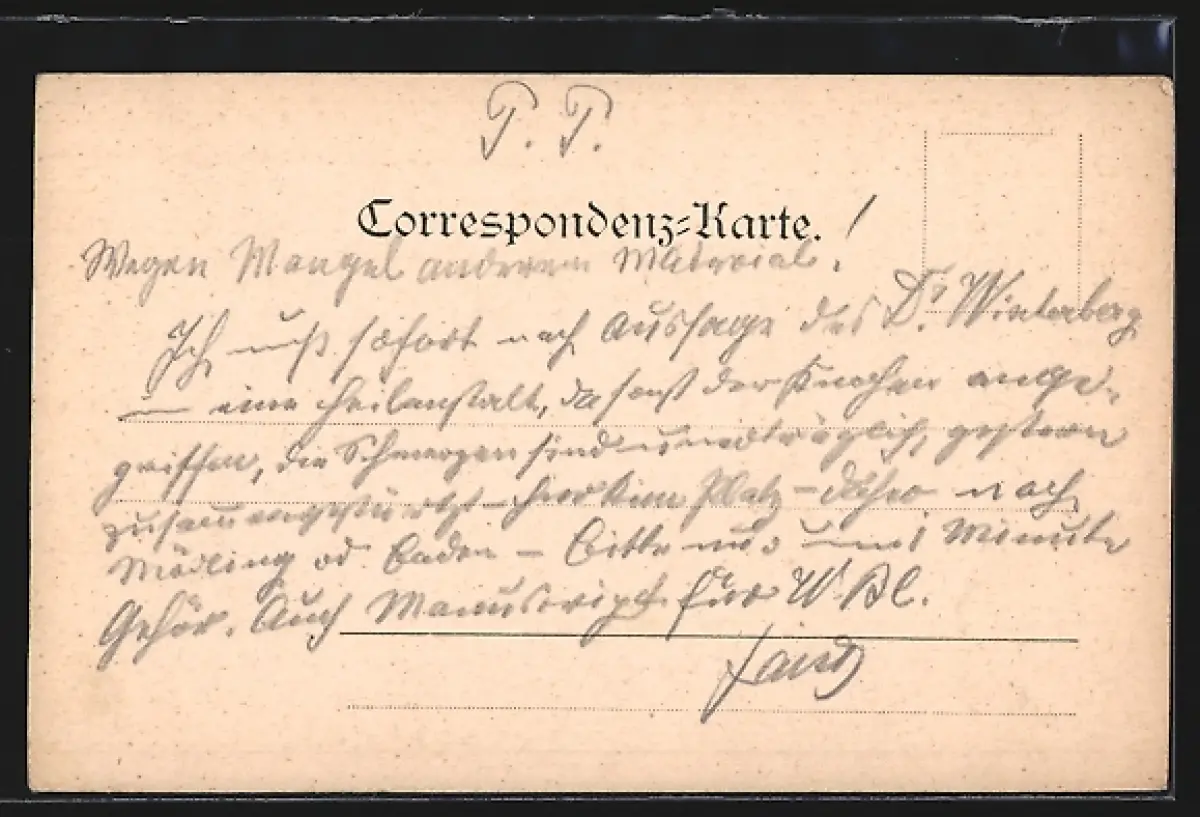 P. T.
Correspondenz=Karte. !
Wegen Mangel anderem Material.
Ich muß sofort nach Aussage des Dr. Winterberg
in eine Heilanstalt, da sonst der Knochen ange-
griffen, die Schmerzen sind unerträglich, gestern
zusammengestürzt - hier kein Platz - daher nach
Mödling od. Baden - bitte nur um 1 Minute
Gehör. Auch Manuscript für W. Bl.